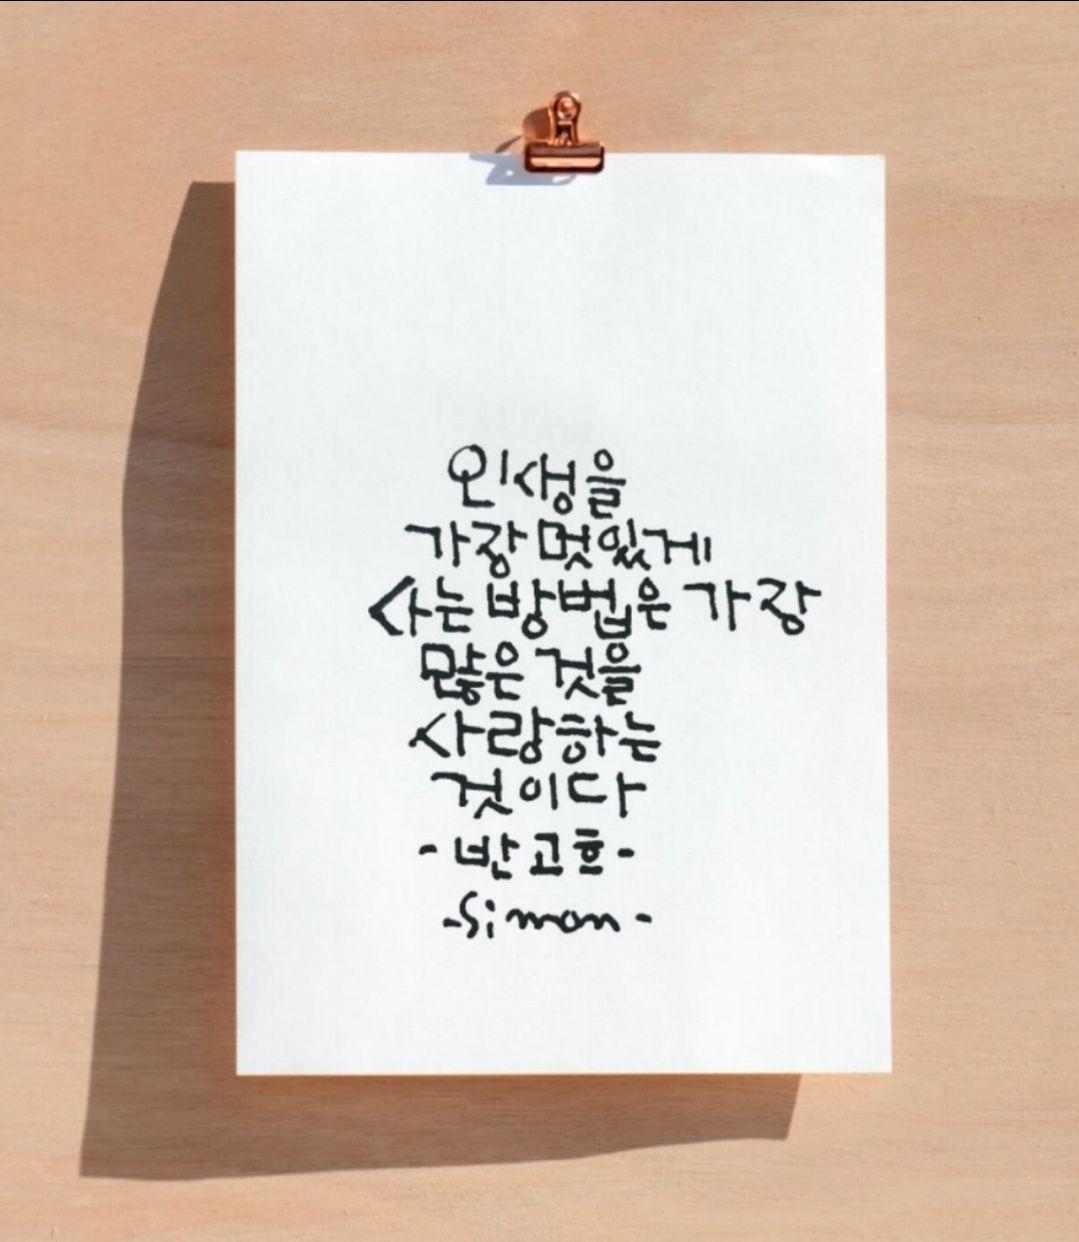 인생을
가장 멋있게
사는 방법은 가장
많은 것을
사랑하는
것이다
- 반 고흐 -
- Simon -